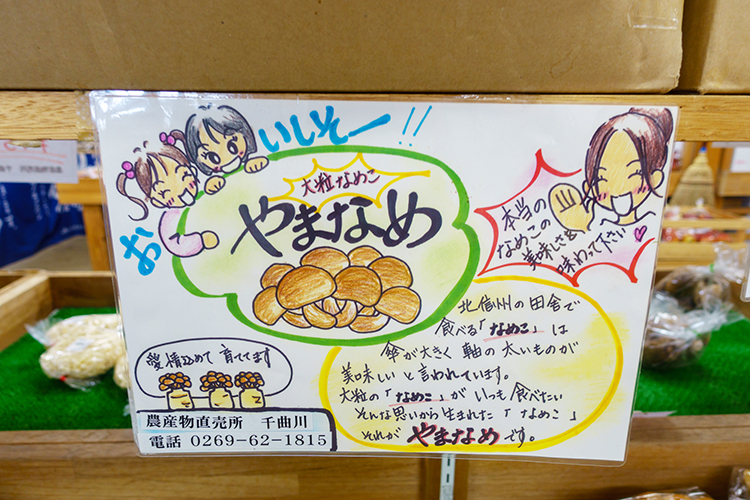 おいしそー!!
大粒なめこ
やまなめ
本当の
なめこの
美味しさを
味わって下さい
北信州の田舎で
食べる「なめこ」は
傘が大きく 軸の太いものが
美味しいと言われています。
大粒の「なめこ」がいつも食べたい
そんな思いから生まれた「なめこ」
それが やまなめ です。
愛情込めて 育ててます
農産物直売所 千曲川
電話 0269-62-1815